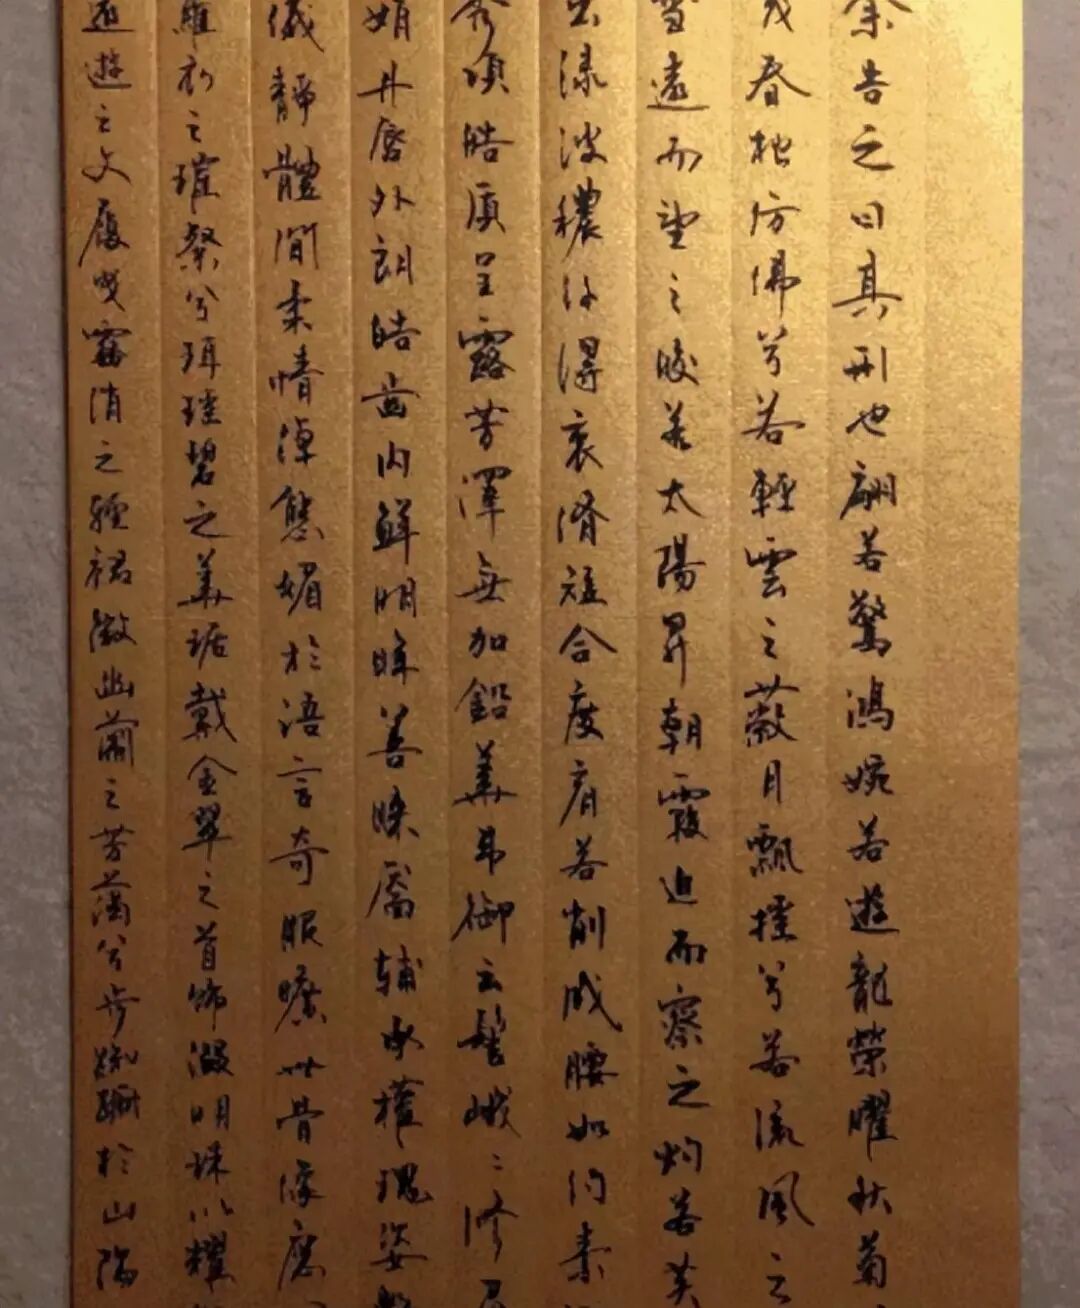 余告之曰其刑也翩若驚鴻婉若遊龍榮曜秋菊
茂春松仿佛兮若輕雲之蔽月飄摇兮若流風之
雪遠而望之晈若太陽昇朝霞迫而察之灼若芙
出渌波穠纤得衷脩短合度肩若削成腰如约素
秀項皓質呈露芳澤無加鉛華弗御云髻峨々修眉
娟丹唇外朗皓齒内鮮明眸善睞靨輔承權瑰姿
儀静體閒柔情綽態媚於語言奇服曠世骨像應
羅衣之璀粲兮珥瑶碧之華琚戴金翠之首飾綴明珠以耀
遠遊之文履曳霧绡之輕裾微幽蘭之芳藹兮步踟蹰於山隅